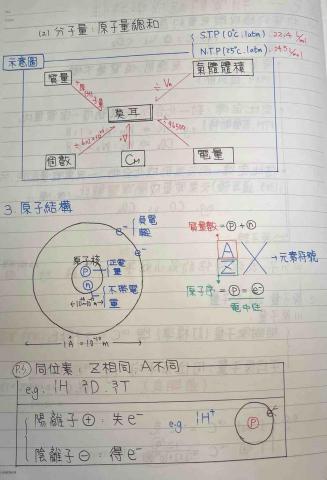 (2) 分子量：原子量總和
S.T.P (0℃, 1atm): 22.4 L/mol
N.T.P (25℃, 1atm): 24.5 L/mol
示意圖
質量
氣體體積
÷ Vm
莫耳
÷96500
個數
CM
電量
3. 原子結構
e⁻ 負電
e⁻
原子核
P 正電
n 不帶電
1Å = 10⁻¹⁰ m
質量數 = P + n
A
Z
X → 元素符號
原子序 = P = e⁻
電中性
P.S 同位素：Z相同 A不同
e.g. ¹₁H ²₁D ³₁T
陽離子 ⊕：失e⁻
e.g. ¹₁H⁺
P
e⁻
陰離子 ⊖：得e⁻